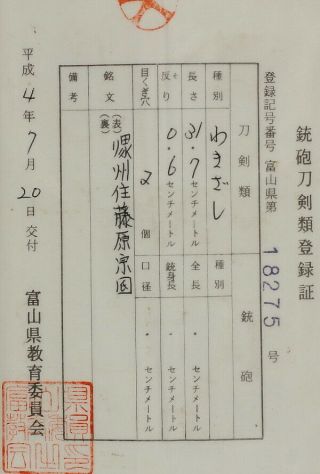 銃砲刀剣類登録証
登録記号番号 富山県第 18275 号
刀剣類
種別 わきざし
長さ 31.7 センチメートル
反り 0.6 センチメートル
目くぎ穴 2 個
銃砲
種別
全長 ・ センチメートル
銃身長 ・ センチメートル
口径 ・ センチメートル
銘文 (表) 州住藤原宗国
(裏)
備考
平成4年7月20日交付
富山県教育委員会